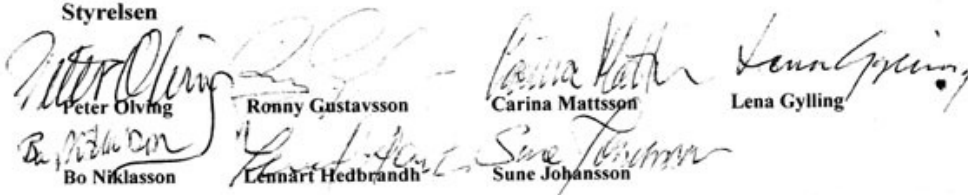 Styrelsen
Peter Olving
Peter Olving Ronny Gustavsson Carina Mattsson Lena Gylling
Bo Niklasson
Bo Niklasson Lennart Hedbrandh Sune Johansson